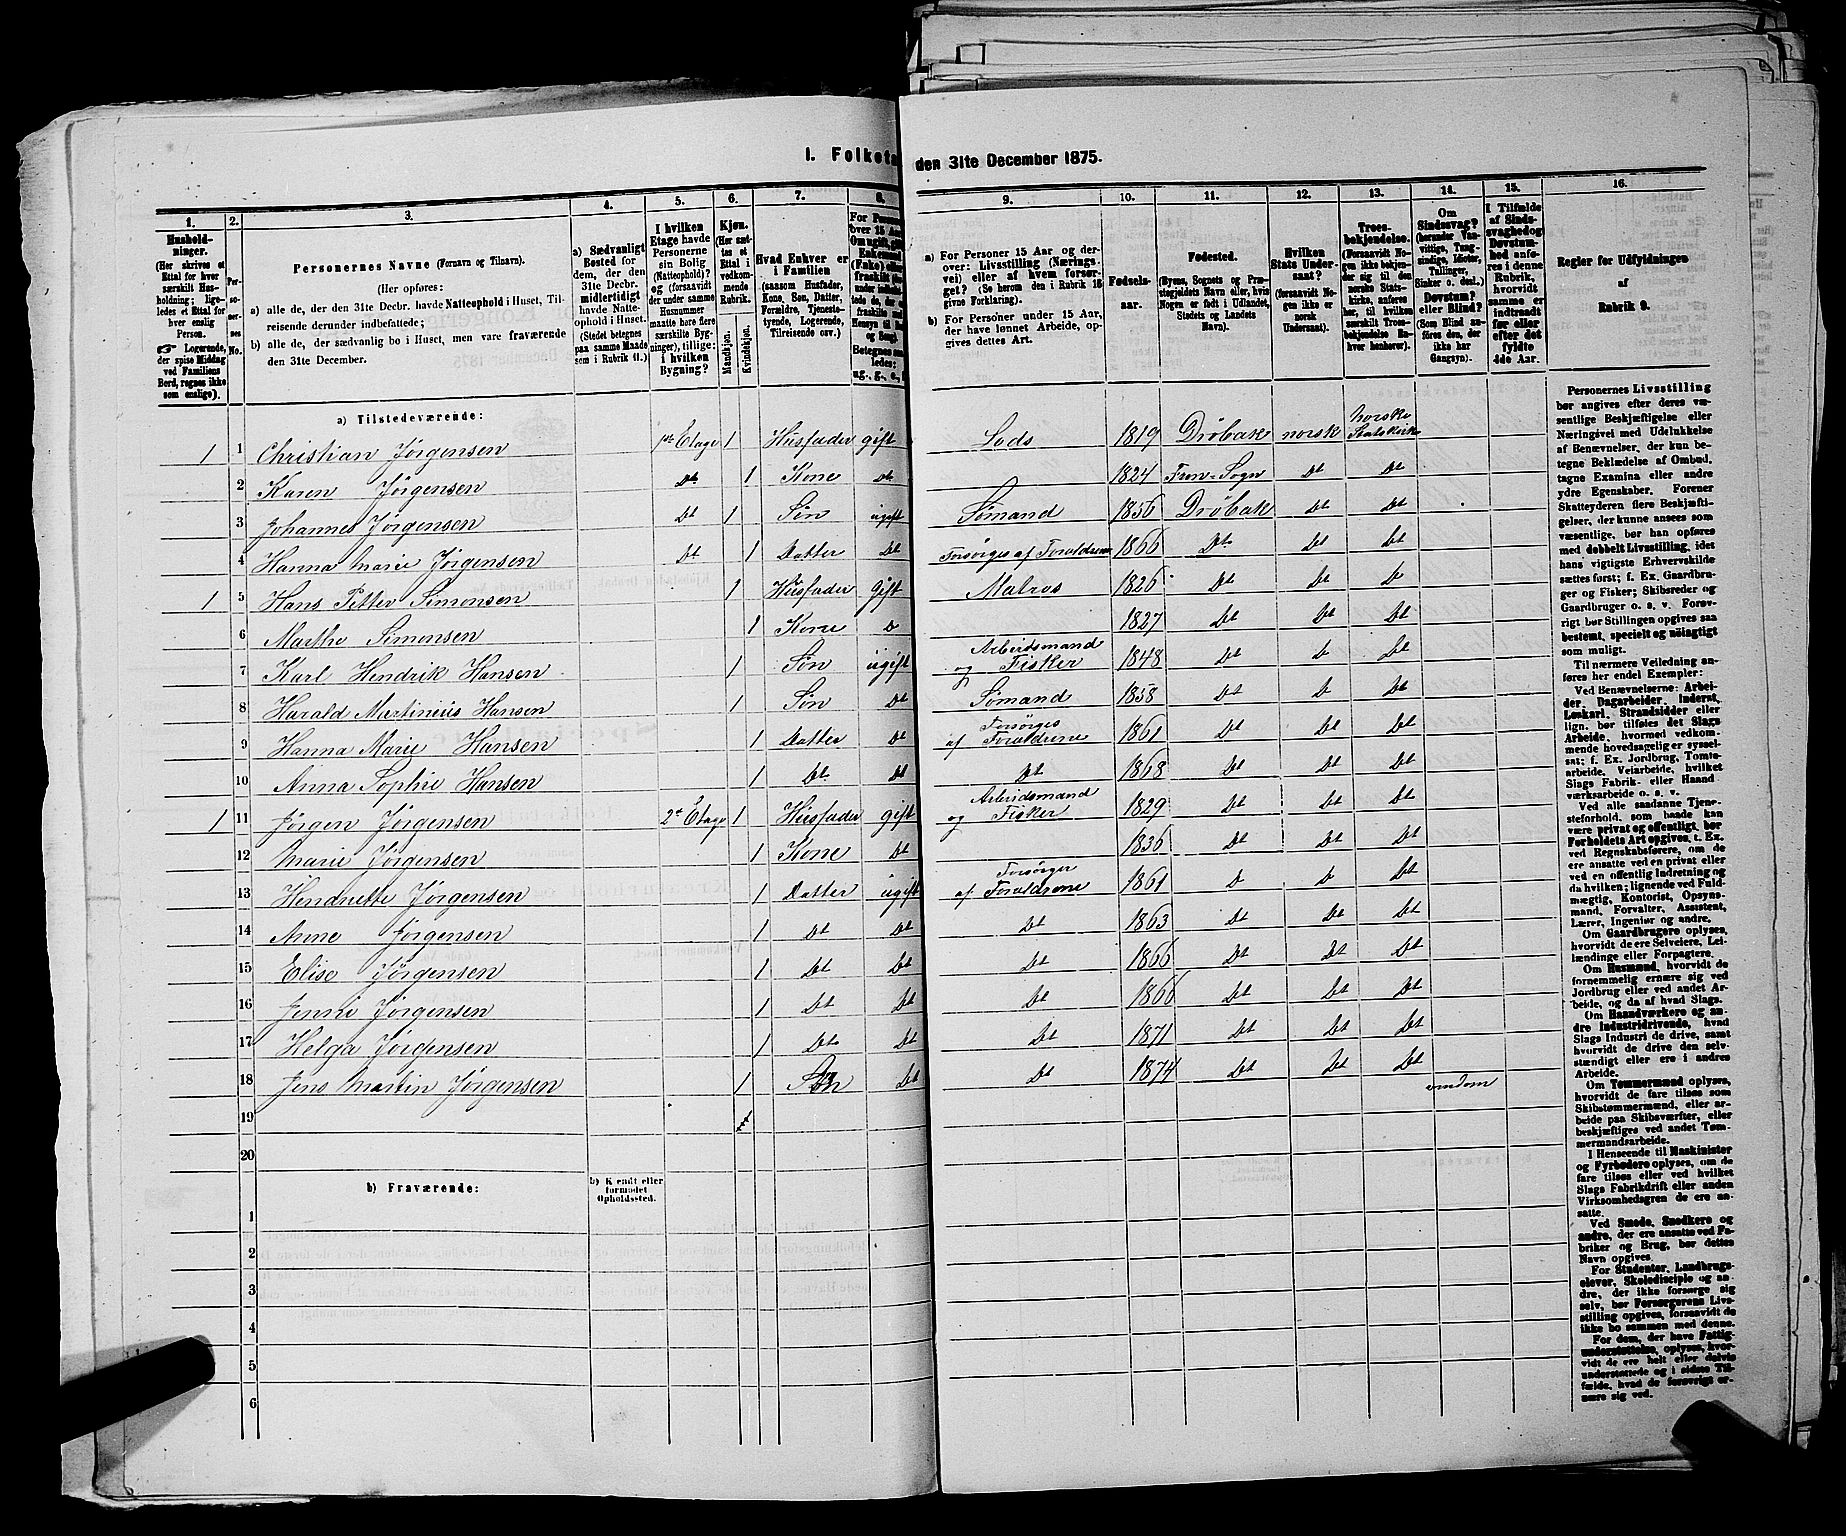 I. Folketæ
den 31te December 1875.
1. 2. 3. 4. 5. 6. 7. 8. 9. 10. 11. 12. 13. 14. 15. 16.
Hushold-
ninger.
(Her skrives et
Ettal for hver
særskilt Hus-
holdning; lige-
ledes et Ettal for
hver enslig
Person.
Logerende,
der spise Middag
ved Familiens
Bord, regnes ikke
som enslige).
Personernes No.
Personernes Navne (Fornavn og Tilnavn).
(Her opføres:
a) alle de, der den 31te Decbr. havde Natteophold i Huset, Til-
reisende derunder indbefattede;
b) alle de, der sædvanlig bo i Huset, men vare fraværende
den 31te December.
a) Sædvanligt
Bosted for
dem, der den
31te Decbr.
midlertidigt
havde Natte-
ophold i Huset.
(Stedet betegnes
paa samme Maade
som i Rubrik 11.)
I hvilken
Etage havde
Personerne
sin Bolig
(Natteophold)?
(og (forsaavidt
der under samme
Husnummer
maatte høre flere
særskilte Byg-
ninger), tillige:
i hvilken
Bygning?
Kjøn.
(Her sæt-
tes et
Ettal i
vedkom-
mende
Rubrik.
Mandkjøn.
Kvindekjøn.
Hvad Enhver er
i Familien
(saasom Husfader,
Kone, Søn, Datter,
Forældre, Tjeneste-
tyende, Logerende,
Tilreisende osv.)
a) For Personer 15 Aar og der-
over: Livsstilling (Nærings-
vei) eller af hvem forsør-
get? (Se herom den i Rubrik 16
givne Forklaring).
b) For Personer under 15 Aar,
der have lønnet Arbeide, op-
gives dettes Art.
Fødsels-
aar.
Fødested.
(Byens, Sognets og Præ-
stegjeldets Navn eller, hvis
Nogen er født i Udlandet,
Stedets og Landets
Navn).
Hvilken
Stats Under-
saat?
(forsaavidt No-
gen ikke er
norsk
Undersaat).
Troes-
bekjendelse.
(Forsaavidt No-
gen ikke bekjen-
der sig til den
norske Stats-
kirke, anføres
her, til hvilken
særskilt Troes-
bekjendelse
hver henhører).
Om
Sindssvag?
(herunder Van-
vittige, Tung-
sindige, Idioter,
Tullinger,
Sinker o. desl.)
Døvstum?
eller Blind?
(Som Blind an-
føres den, der
ikke har
Gangsyn).
I Tilfælde
af Sinds-
svaghed og
Døvstum-
hed anfø-
res i denne
Rubrik,
hvorvidt
samme er
indtraadt
før eller
efter det
fyldte
4de Aar.
Regler for Udfyldningen
af
Rubrik 9.
a) Tilstedeværende:
1 1 Christian Jørgensen 1ste Etage 1 Husfader gift Lods 1819 Drøbak norsk norske Statskirke
2 Karen Jørgensen Dt 1 Kone Dt 1824 Fron-Sogn Dt Dt
3 Johannes Jørgensen Dt 1 Søn ugift Sømand 1856 Drøbak Dt Dt
4 Hanna Marie Jørgensen Dt 1 Datter Dt Forsørges af Foraldrene 1866 Dt Dt Dt
1 5 Hans Petter Simonsen 1 Husfader gift Matros 1826 Dt Dt D
6 Marthe Simonsen 1 Kone D 1827 Dt Dt Dt
7 Karl Hendrik Hansen 1 Søn ugift Arbeidsmand og Fisker 1848 Dt D Dt
8 Harald Martinius Hansen 1 Søn Dt Sømand 1858 Dt D Dt
9 Hanna Marie Hansen 1 Datter Dt Forsørges af Foraldrene 1861 Dt Dt Dt
10 Anna Sophie Hansen 1 Dt Dt Dt 1868 Dt Dt Dt
1 11 Jørgen Jørgensen 2d Etage 1 Husfader gift Arbeidsmand og Fisker 1829 Dt Dt Dt
12 Marie Jørgensen 1 Kone Dt 1836 Dt Dt Dt
13 Hendriette Jørgensen 1 Datter ugift Forsørger af Foraldrene 1861 D D Dt
14 Anne Jørgensen 1 Dt Dt Dt 1863 Dt Dt Dt
15 Elise Jørgensen 1 Dt Dt Dt 1866 Dt Dt Dt
16 Jenni Jørgensen 1 Dt Dt Dt 1866 Dt Dt Dt
17 Helga Jørgensen 1 Dt Dt Dt 1871 Dt Dt Dt
18 Jens Martin Jørgensen 1 Søn Dt Dt 1874 Dt Dt Dt
19
20
b) Fraværende:
b) Kjendt eller
formodet
Opholdssted.
1
2
3
4
5
6
Personernes Livsstilling
bør angives efter deres væ-
sentlige Beskjæftigelse eller
Næringsvei med Udelukkelse
af Benævnelser, der kun be-
tegne Beklædelse af Ombud,
tagne Examina eller andre
ydre Egenskaber. Forener
Skatteyderen flere Beskjæfti-
gelser, der kunne ansees som
væsentlige, bør han opføres
med dobbelt Livsstilling, idet
hans vigtigste Erhvervskilde
sættes først; f. Ex. Gaardbru-
ger og Fisker; Skibsreder og
Gaardbruger o. s. v. Forøv-
rigt bør Stillingen opgives saa
bestemt, specielt og nøiagtigt
som muligt.
Til nærmere Veiledning an-
føres her endel Exempler:
Ved Benævnelserne: Arbei-
der, Dagarbeider, Inderst,
Løskarl, Strandsidder eller
lign. bør tilføies det Slags
Arbeide, hvormed vedkom-
mende hovedsagelig er syssel-
sat; f. Ex. Jordbrug, Tomte-
arbeide, Veiarbeide, hvilket
Slags Fabrik- eller Haand
værksarbeide o. s. v.
Ved alle saadanne Tjene-
steforhold, som baade kan
være privat og offentligt, bør
Forholdets Art opgives, t. Ex.
ved Regnskabsførere, om de
ere ansatte ved en privat eller
ved en offentlig Indretning og
da hvilken; lignende ved Fuld-
mægtig, Kontorist, Opsyns-
mand, Forvalter, Assistent,
Lærer, Ingeniør og andre.
Om Gaardbrugere oplyses,
hvorvidt de ere Selveiere, Lei-
lændinge eller Forpagtere.
Om Husmænd, hvorvidt de
fornemmelig ernære sig ved
Jordbrug eller ved andet Ar-
beide, og da af hvad Slags.
Om Haandværkere og an-
dre Industridrivende, hvad
Slags Industri de drive, samt
hvorvidt de drive den selv-
stændigt eller ere i andres
Arbeide.
Om Tømmermænd oplyses,
hvorvidt de fare tilsøs som
Skibstømmermænd, eller ar-
beide paa Skibsværfter, eller
beskjæftiges ved andet Tøm-
mermandsarbeide.
I Henseende til Maskinister
og Fyrbødere oplyses, om de
fare tilsøs eller ved hvilket
Slags Fabrikdrift eller anden
Virksomhedsgren de ere an-
satte.
Ved Smede, Snedkere og
andre, der ere ansatte ved Fa-
briker og Brug, bør dettes
Navn opgives.
For Studenter, Landbrugs-
elever, Skoledisciple og an-
dre, der ikke forsørge sig
selv, bør Forsørgerens Livs-
stilling opgives, forsaavidt de
ikke bo sammen med denne.
For dem, der have Fattig-
understøttelse, oplyses, hvor-
vidt de ere helt eller delvis
understøttede og i sidste Til-
fælde, hvad de forøvrigt er-
nære sig ved.